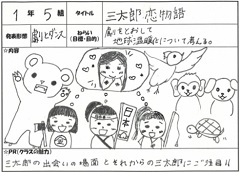 1年5組 タイトル 三太郎恋物語
発表形態 劇とダンス ねらい(目標・目的) 劇をとおして
地球温暖化について考える。
☆内容
日本一
☆PR(クラスの魅力)
三太郎の出会いの場面とそれからの三太郎にご注目!!